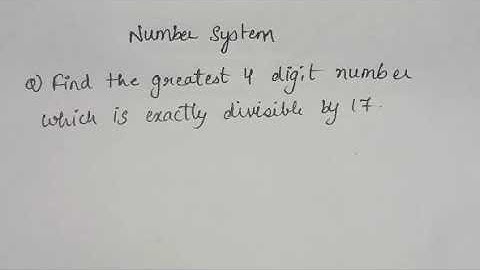 Number System
Q) Find the greatest 4 digit number
which is exactly divisible by 17.